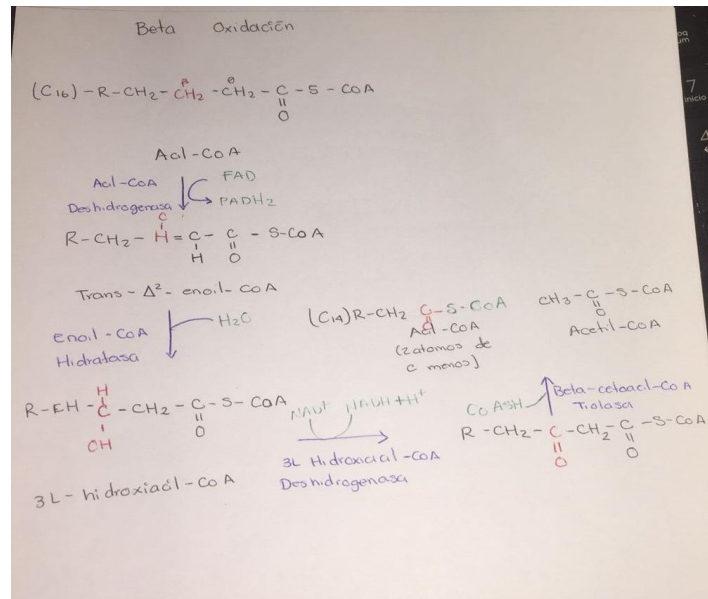 Beta Oxidación
(C16) - R - CH2 - CH2 - CH2 - C - S - CoA
β
O
Acil - CoA
Acil - CoA
Deshidrogenasa
FAD
PADH2
C
R - CH2 - H = C - C - S-CoA
H O
Trans - Δ² - enoil - CoA
enoil - CoA
Hidratasa
H2O
(C14) R-CH2 C-S-CoA
Acil - CoA
(2 atomos de
c menos)
CH3 - C - S - CoA
O
Acetil-CoA
H
R - CH - C - CH2 - C - S - CoA
OH O
3L - hidroxiacil - CoA
NAD+ NADH + H+
3L Hidroxiacil - CoA
Deshidrogenasa
CoASH
Beta-cetoacil-CoA
Tiolasa
R - CH2 - C - CH2 - C - S - CoA
O O
7
inicio